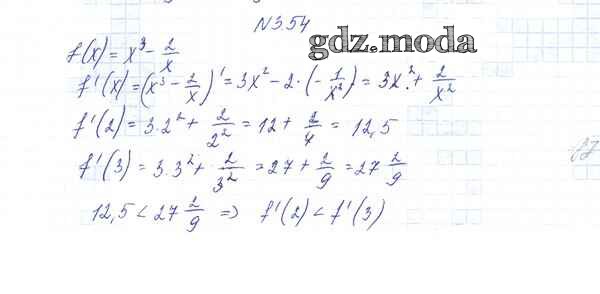 N 3.54
gdz.moda
f(x) = x³ - 2/x
f'(x) = (x³ - 2/x)' = 3x² - 2·(-1/x²) = 3x² + 2/x²
f'(2) = 3·2² + 2/2² = 12 + 2/4 = 12,5
f'(3) = 3·3² + 2/3² = 27 + 2/9 = 27 2/9
12,5 < 27 2/9 => f'(2) < f'(3)